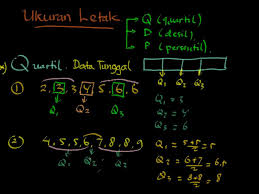 Ukuran Letak
Q (quartil).
D (desil),
P (persentil).
Quartil Data Tunggal
Q1 Q2 Q3
(1) 2, 3, 3, 4, 5, 6, 6
Q1 Q2 Q3
Q1 = 3
Q2 = 4
Q3 = 6
(2) 4, 5, 5, 6, 7, 8, 8, 9
Q1 Q2 Q3
Q1 = 5+5/2 = 5
Q2 = 6+7/2 = 6,5
Q3 = 8+8/2 = 8